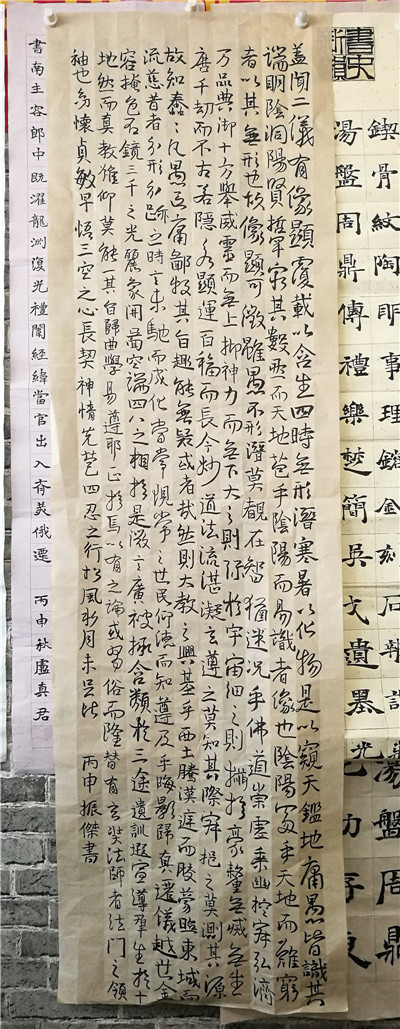 鍥骨紋陶明事理鑄金刻石
湯盤周鼎傳禮樂楚簡吳戈遺墨
湯盤周鼎
盖聞二儀有像顯覆載以含生四時無形潛寒暑以化物是以窺天鑑地庸愚皆識其
端明陰洞陽賢哲罕窮其數然而天地苞乎陰陽而易識者像也陰陽處乎天地而難窮
者以其無形也故像顯可徵雖愚不形潛莫覩在智猶迷況乎佛道崇虛乘幽控寂弘濟
万品典御十方舉威靈而無上抑神力而無下大之則弥於宇宙細之則攝於豪釐無滅無生
歷千劫而不古若隱若顯運百福而長今妙道法流湛凝玄遵之莫知其際寂挹之莫測其源
故知蠢蠢凡愚區區庸鄙投其旨趣能無疑或者哉然則大教之興基乎西土騰漢庭而皎夢照東域而
流慈昔者分形分跡之時言未馳而成化當常現常之世民仰德而知遵及乎晦影歸真遷儀越世金
容掩色不鏡三千之光麗象開圖空端四八之相於是微言廣被拯含類於三途遺訓遐宣導群生於十
地然而真教難仰莫能一其旨歸曲學易遵耶正於焉以有之論或習俗而隆替有玄奘法師者法門之領
袖也幼懷貞敏早悟三空之心長契神情先苞四忍之行松風水月未足比 丙申振傑書
書南主客郎中既濯龍淵復光禮闈經緯當官出入斉美俄遷 丙申秋盧真君